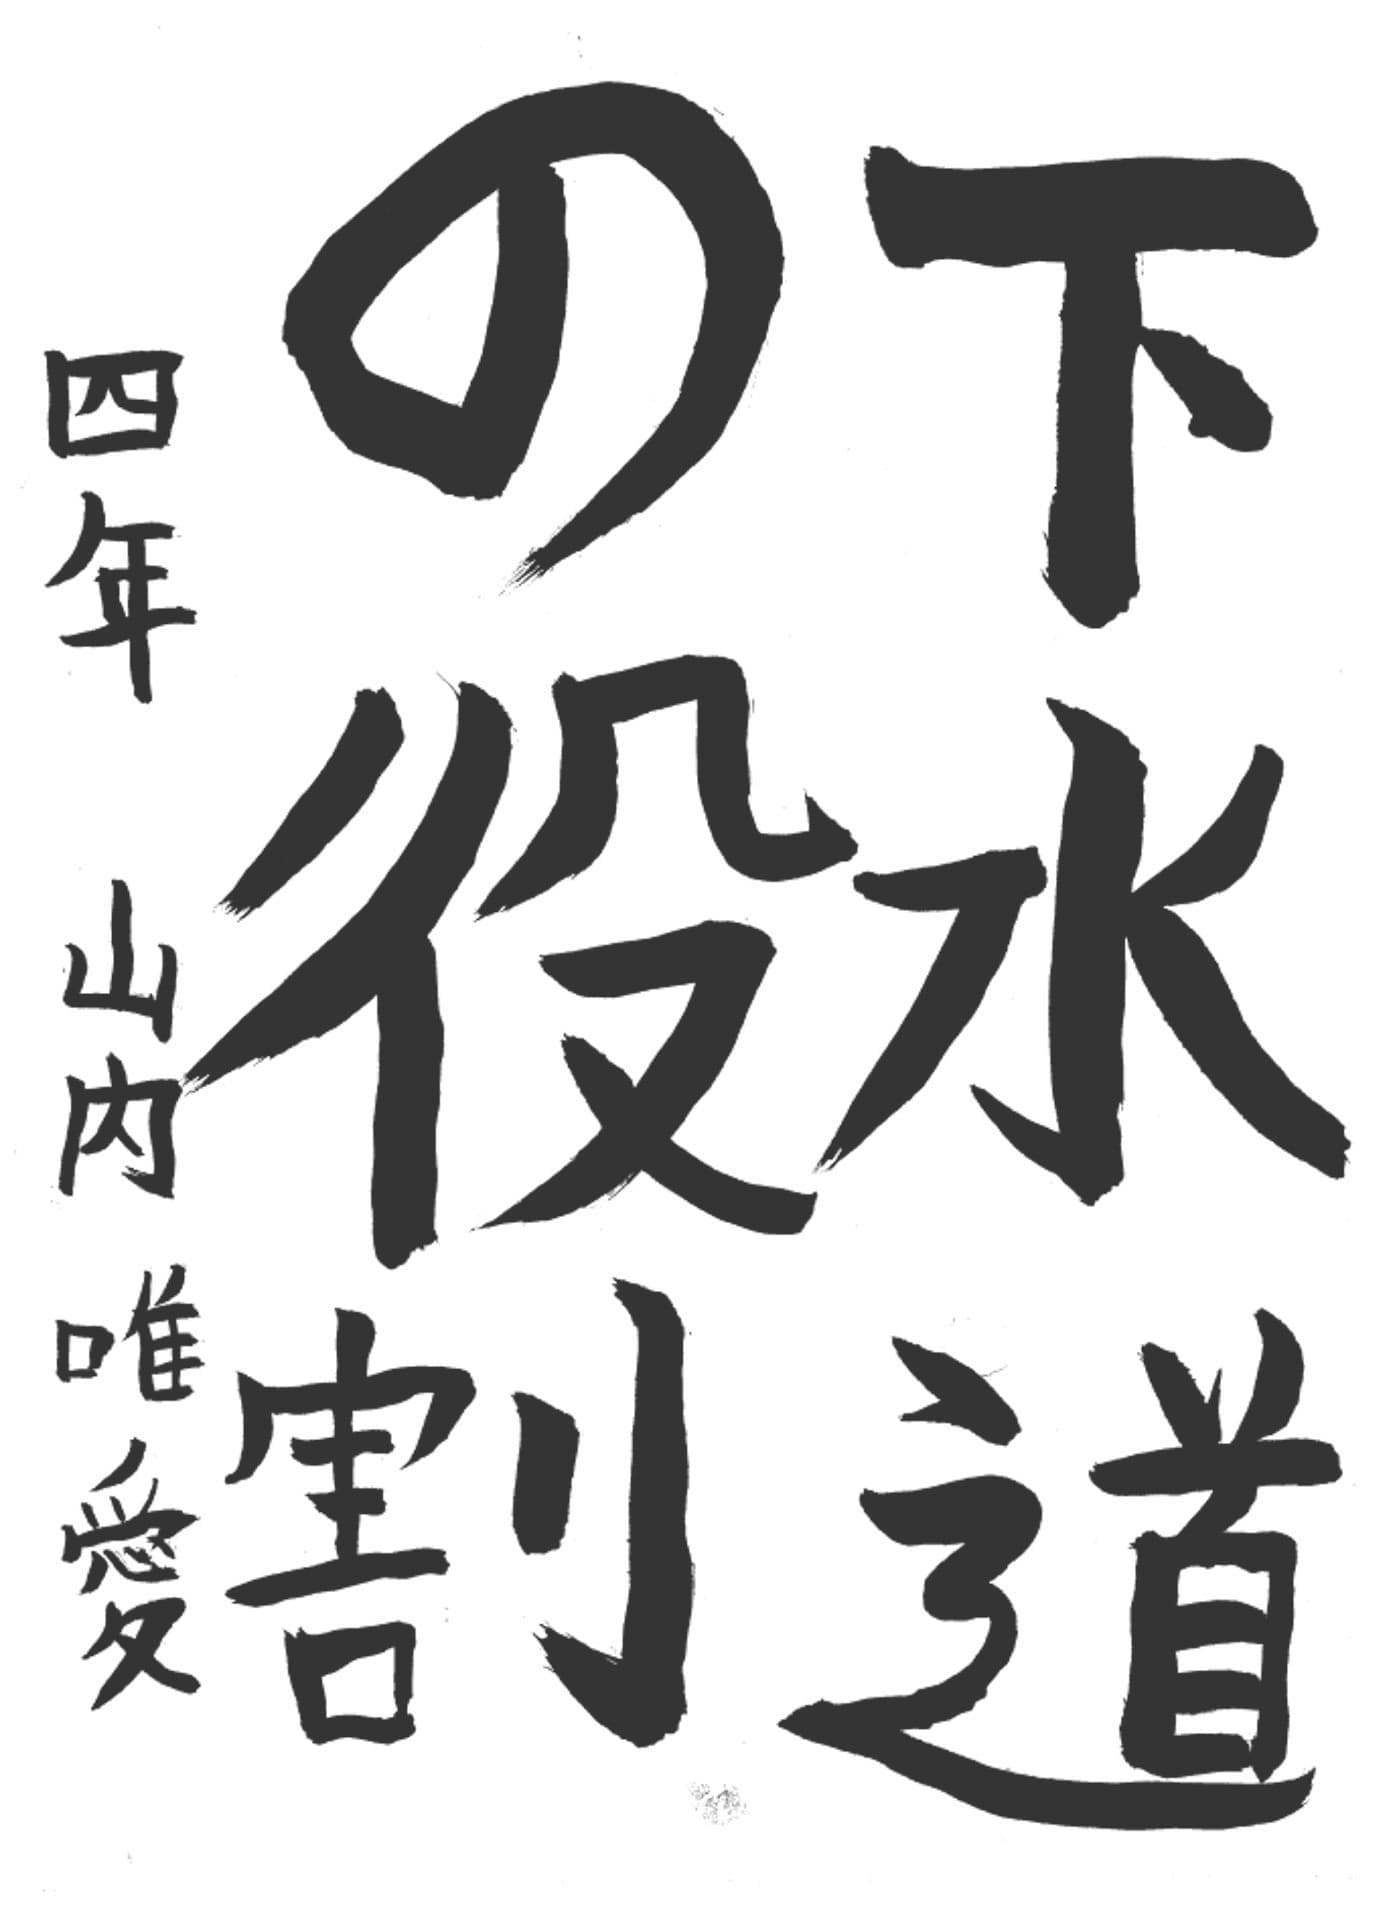 下水道
の役割
四年 山内 唯愛